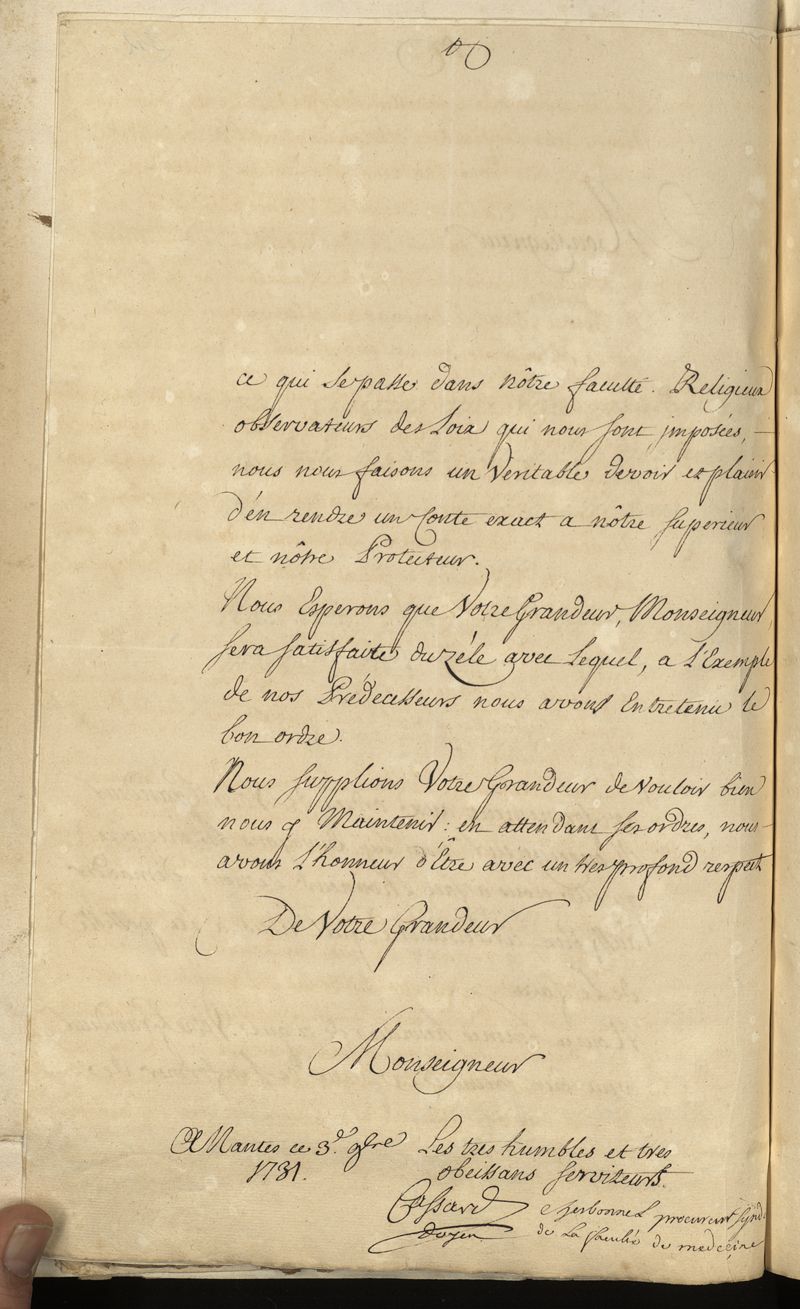 ce qui se passe dans nôtre faculté. Religieux
observateurs des Loix qui nous sont jmposées,
nous nous faisons un Veritable devoir et plaisir
d'én rendre un Conte exact a nôtre superieur
et nôtre Protecteur.
Nous Esperons que Votre Grandeur, Monseigneur,
sera satisfaite du zéle avec Lequel, a L'Exemple
de nos Prédecesseurs nous avons Entretenu le
bon ordre.
Nous supplions Votre Grandeur de Vouloir bien
nous y Maintenir: en attendant ses ordres, nous
avons L'honneur d'Être avec un tres profond respect
De Votre Grandeur
Monseigneur
A Nantes ce 3.e 9bre
1731.
Les tres humbles et tres
obeissans serviteurs.
Cossard
doyen
procureur synd.
de La faculté de medecine